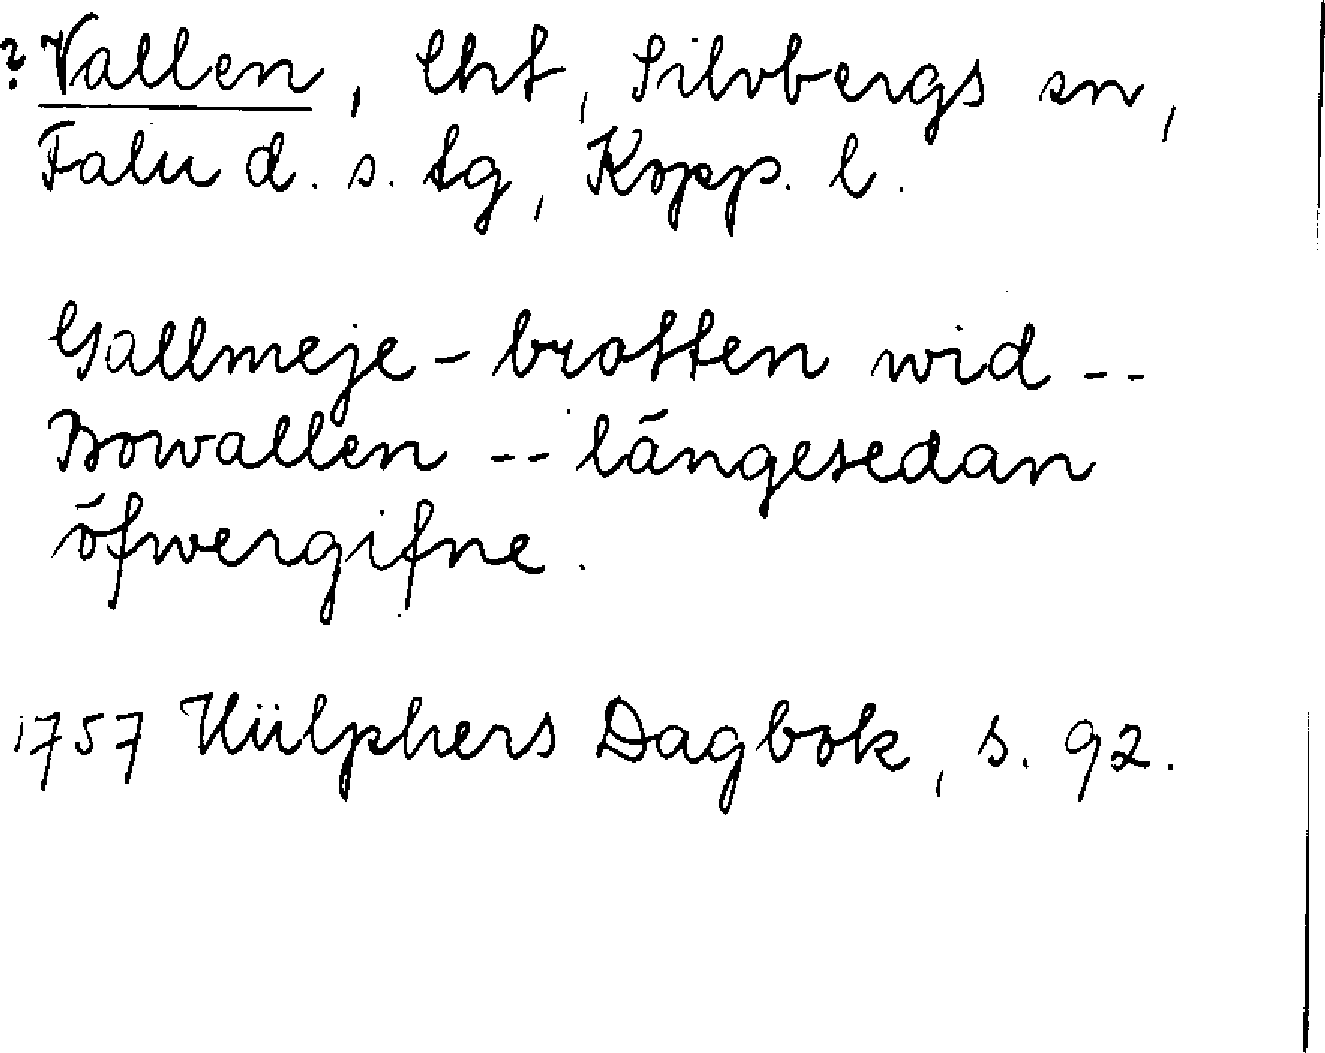 ? Vallen, lht, Silvbergs sn,
Falu d. s. tg, Kopp. l.
Gallmeje-brotten wid --
Bowallen -- längesedan
öfwergifne.
1757 Hülphers Dagbok, s. 92.